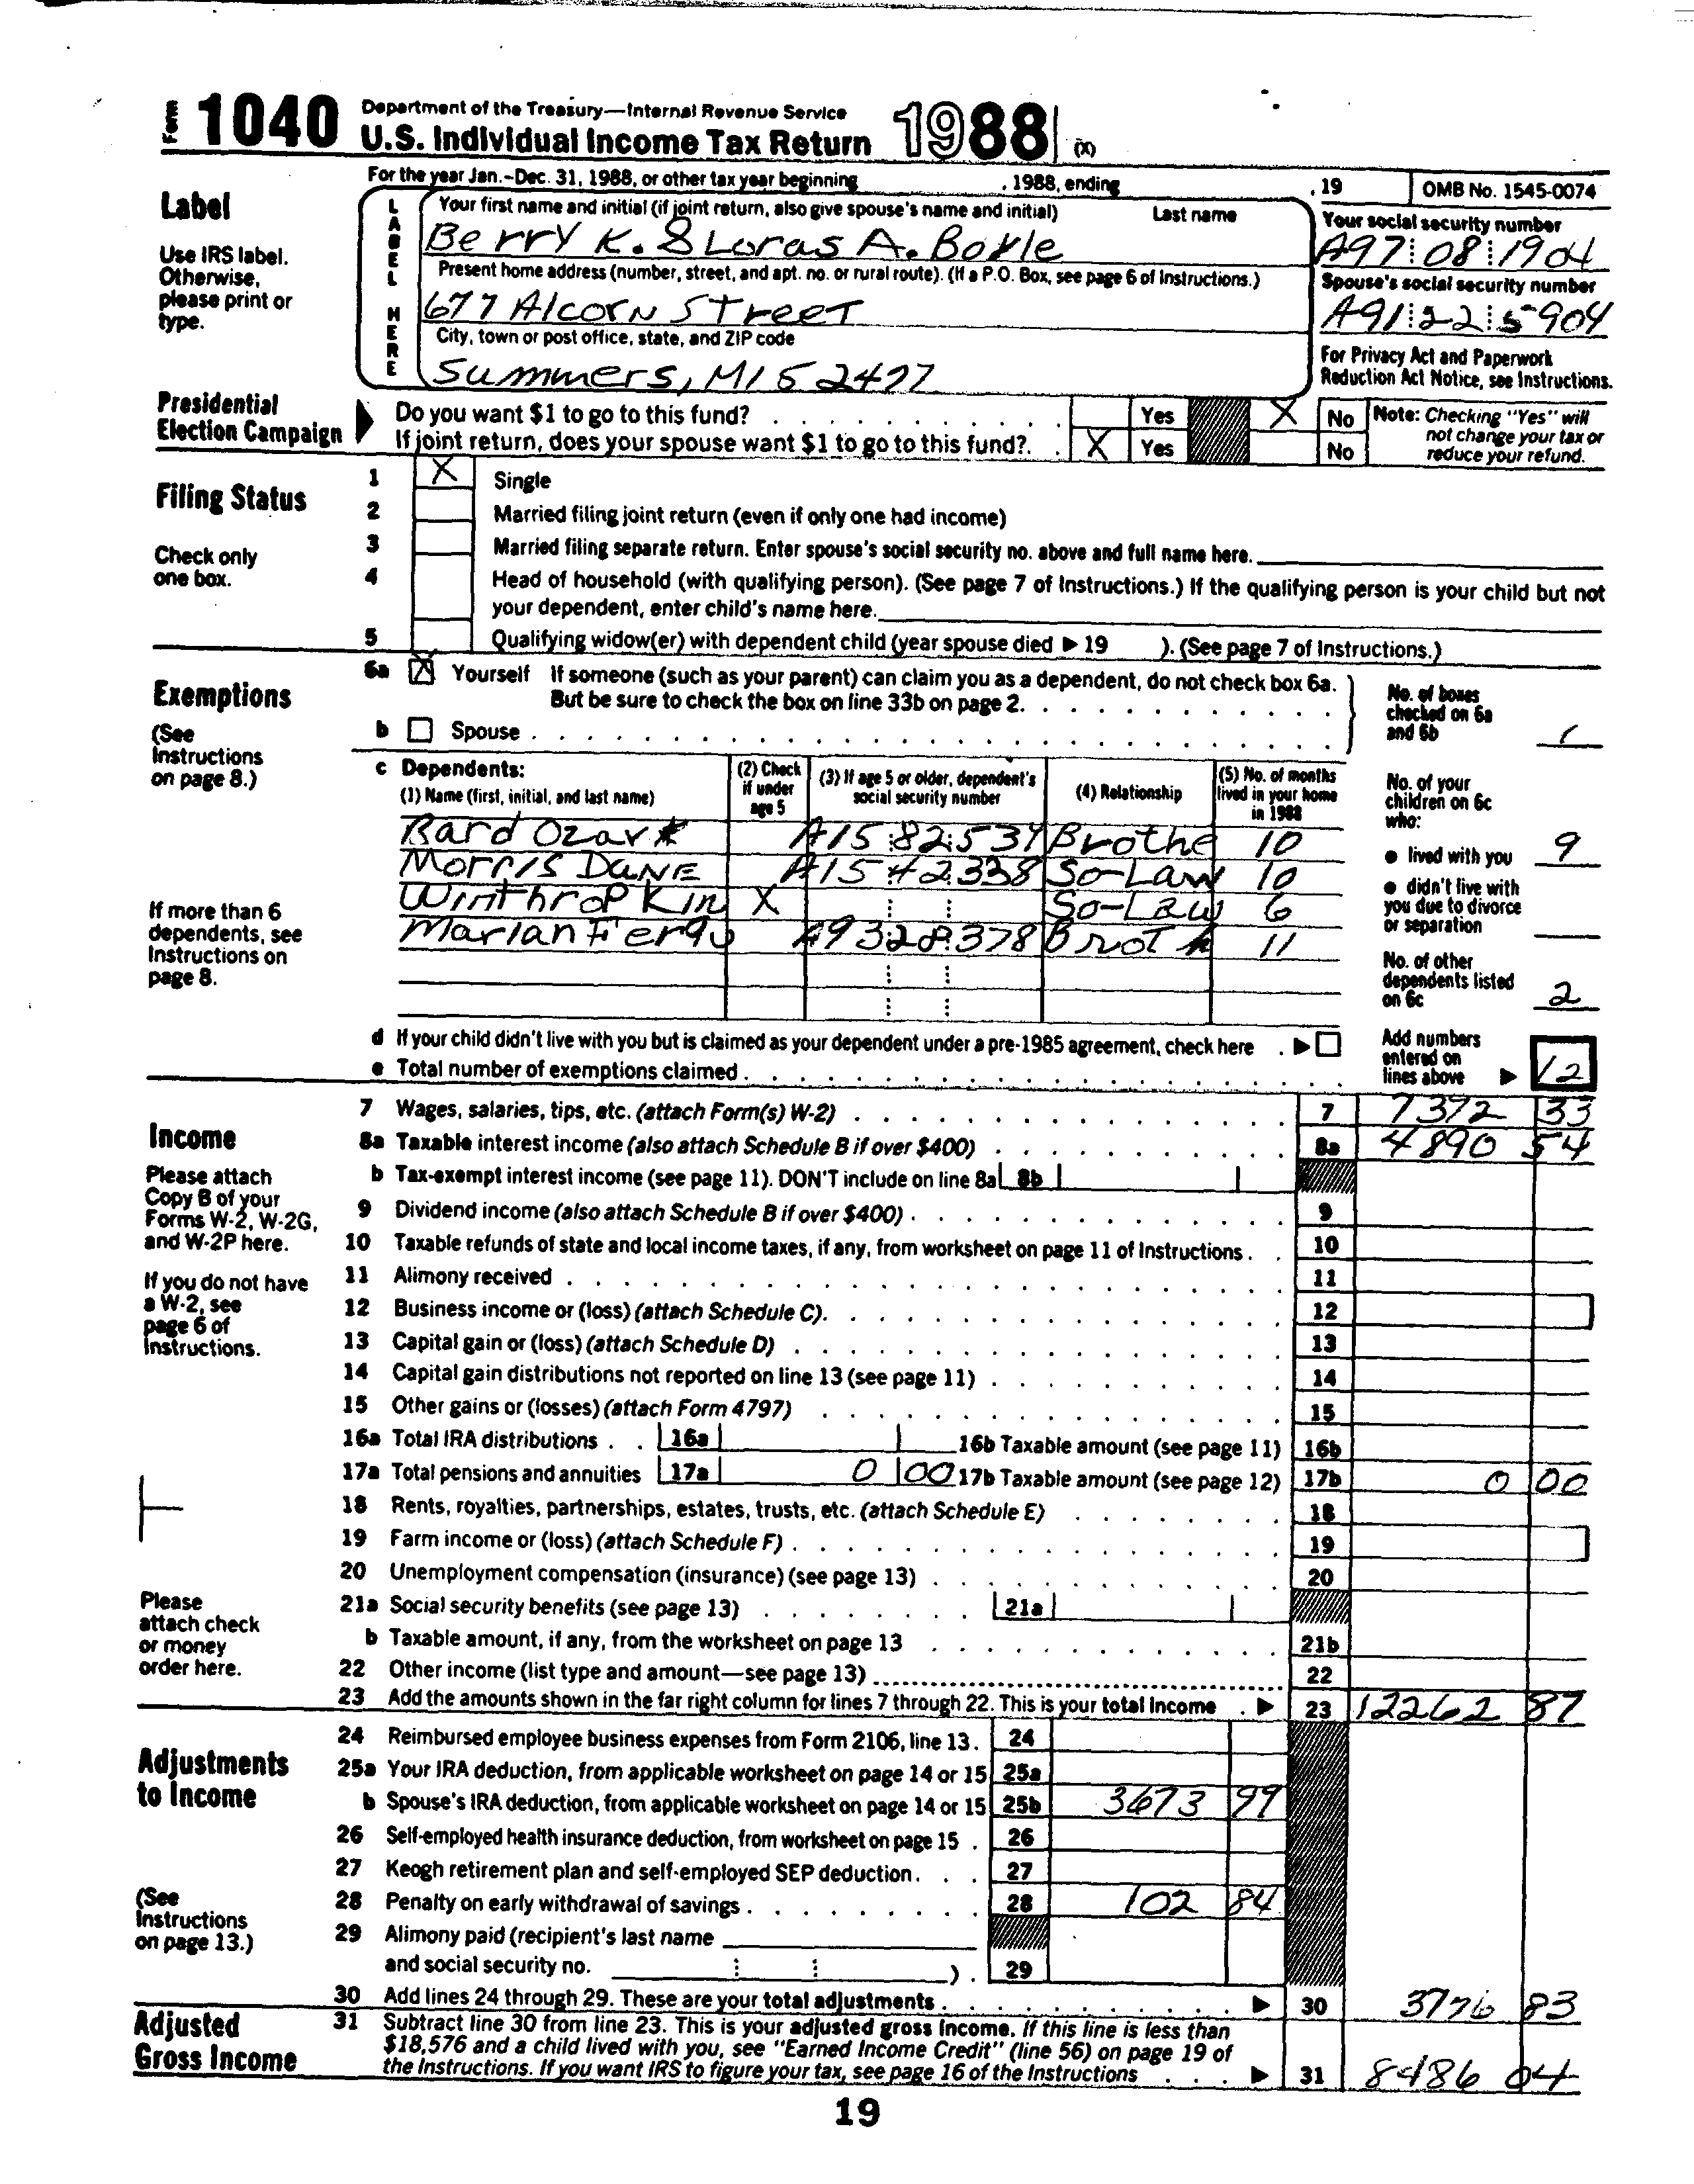 Form 1040 Department of the Treasury—Internal Revenue Service
U.S. Individual Income Tax Return 1988 (X)
For the year Jan.-Dec. 31, 1988, or other tax year beginning , 1988, ending , 19 OMB No. 1545-0074
Label
Use IRS label.
Otherwise,
please print or
type.
LABEL HERE
Your first name and initial (if joint return, also give spouse's name and initial) Last name
Berry K. & Loras A. Boyle
Present home address (number, street, and apt. no. or rural route). (If a P.O. Box, see page 6 of Instructions.)
677 Alcorn Street
City, town or post office, state, and ZIP code
Summers, MI 52477
Your social security number
A97 08 1904
Spouse's social security number
A91 22 5904
For Privacy Act and Paperwork
Reduction Act Notice, see Instructions.
Presidential
Election Campaign
Do you want $1 to go to this fund? Yes X No
If joint return, does your spouse want $1 to go to this fund? X Yes No
Note: Checking "Yes" will
not change your tax or
reduce your refund.
Filing Status
Check only
one box.
1 X Single
2 Married filing joint return (even if only one had income)
3 Married filing separate return. Enter spouse's social security no. above and full name here.
4 Head of household (with qualifying person). (See page 7 of Instructions.) If the qualifying person is your child but not
your dependent, enter child's name here.
5 Qualifying widow(er) with dependent child (year spouse died ▶ 19 ). (See page 7 of Instructions.)
Exemptions
(See
Instructions
on page 8.)
6a X Yourself If someone (such as your parent) can claim you as a dependent, do not check box 6a.
But be sure to check the box on line 33b on page 2.
b Spouse
No. of boxes
checked on 6a
and 6b 1
c Dependents:
(1) Name (first, initial, and last name)
(2) Check
if under
age 5
(3) If age 5 or older, dependent's
social security number
(4) Relationship
(5) No. of months
lived in your home
in 1988
Bard Ozark A15 82 534 Brothe 10
Morris Dane A15 42 338 So-Law 10
Winthrop Kin X So-Law 6
Marian Fergu A93 28 378 Broth 11
If more than 6
dependents, see
Instructions on
page 8.
No. of your
children on 6c
who:
● lived with you 9
● didn't live with
you due to divorce
or separation
No. of other
dependents listed
on 6c 2
d If your child didn't live with you but is claimed as your dependent under a pre-1985 agreement, check here ▶
e Total number of exemptions claimed
Add numbers
entered on
lines above ▶ 12
Income
Please attach
Copy B of your
Forms W-2, W-2G,
and W-2P here.
If you do not have
a W-2, see
page 6 of
Instructions.
7 Wages, salaries, tips, etc. (attach Form(s) W-2) 7 7372 33
8a Taxable interest income (also attach Schedule B if over $400) 8a 4890 54
b Tax-exempt interest income (see page 11). DON'T include on line 8a 8b
9 Dividend income (also attach Schedule B if over $400) 9
10 Taxable refunds of state and local income taxes, if any, from worksheet on page 11 of Instructions 10
11 Alimony received 11
12 Business income or (loss) (attach Schedule C) 12
13 Capital gain or (loss) (attach Schedule D) 13
14 Capital gain distributions not reported on line 13 (see page 11) 14
15 Other gains or (losses) (attach Form 4797) 15
16a Total IRA distributions 16a 16b Taxable amount (see page 11) 16b
17a Total pensions and annuities 17a 0 00 17b Taxable amount (see page 12) 17b 0 00
18 Rents, royalties, partnerships, estates, trusts, etc. (attach Schedule E) 18
19 Farm income or (loss) (attach Schedule F) 19
20 Unemployment compensation (insurance) (see page 13) 20
21a Social security benefits (see page 13) 21a
b Taxable amount, if any, from the worksheet on page 13 21b
22 Other income (list type and amount—see page 13) 22
23 Add the amounts shown in the far right column for lines 7 through 22. This is your total income ▶ 23 12262 87
Please
attach check
or money
order here.
Adjustments
to Income
(See
Instructions
on page 13.)
24 Reimbursed employee business expenses from Form 2106, line 13. 24
25a Your IRA deduction, from applicable worksheet on page 14 or 15 25a
b Spouse's IRA deduction, from applicable worksheet on page 14 or 15 25b 3673 99
26 Self-employed health insurance deduction, from worksheet on page 15 26
27 Keogh retirement plan and self-employed SEP deduction 27
28 Penalty on early withdrawal of savings 28 102 84
29 Alimony paid (recipient's last name
and social security no. ) 29
30 Add lines 24 through 29. These are your total adjustments ▶ 30 3776 83
Adjusted
Gross Income
31 Subtract line 30 from line 23. This is your adjusted gross income. If this line is less than
$18,576 and a child lived with you, see "Earned Income Credit" (line 56) on page 19 of
the Instructions. If you want IRS to figure your tax, see page 16 of the Instructions ▶ 31 8486 04
19